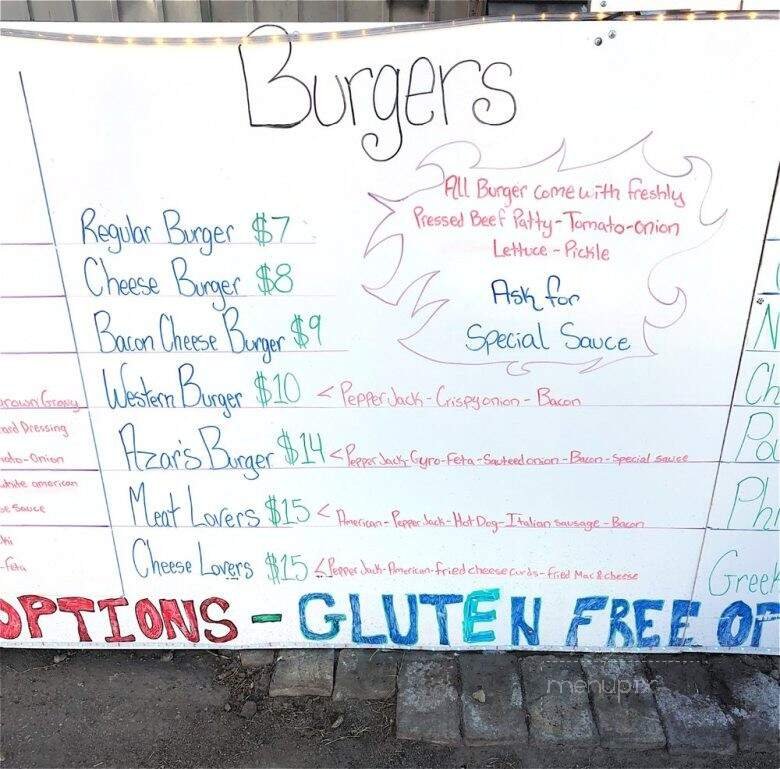 Burgers
All Burger come with freshly
Pressed Beef Patty-Tomato-onion
Lettuce-Pickle
Ask for
Special Sauce
Regular Burger $7
Cheese Burger $8
Bacon Cheese Burger $9
Western Burger $10 < Pepper Jack-Crispy onion-Bacon
Azar's Burger $14 < Pepper Jack-Gyro-Feta-Sauteed onion-Bacon-Special sauce
Meat Lovers $15 < American-Pepper Jack-Hot Dog-Italian sausage-Bacon
Cheese Lovers $15 < Pepper Jack-American-fried cheese curds-fried Mac & cheese
rown Gravy
Dressing
-onion
white american
sauce
ki
-feta
N
Ch
Po
Phi
Greek
OPTIONS - GLUTEN FREE OP
menupix